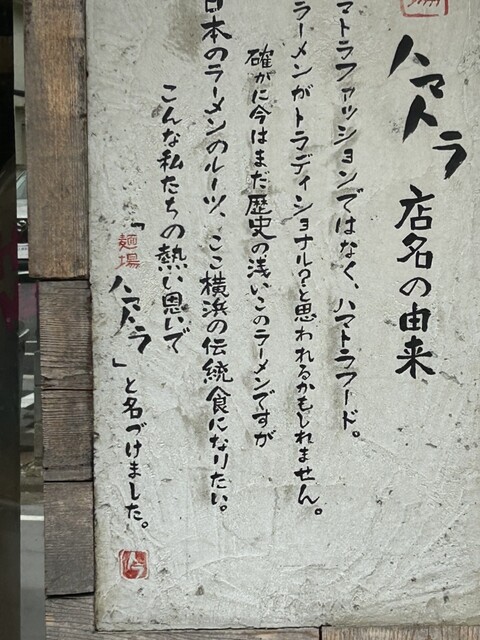 ハマトラ 店名の由来
マトラファッションではなく、ハマトラフード。
ラーメンがトラディショナル？と思われるかもしれません。
確かに今はまだ歴史の浅いこのラーメンですが
日本のラーメンのルーツ、ここ横浜の伝統食になりたい。
こんな私たちの熱い思いで
「麺場 ハマトラ」と名づけました。